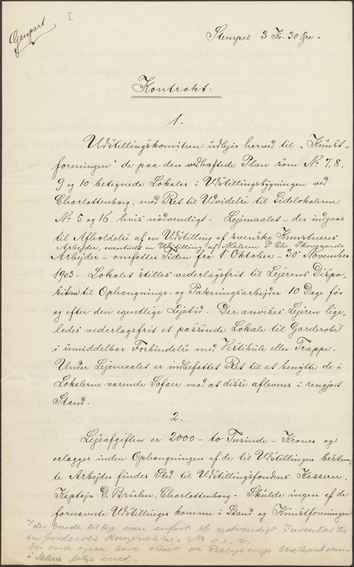 Genpart
I
Stempel 3 Kr. 30 Øre.
Kontrakt.
1.
Udstillingskomiteen udlejer herved til "Kunst-
foreningen" de paa den vedhæftede Plan som No 7, 8,
9 og 10 betegnede Lokaler i Udstillingsbygningen ved
Charlottenborg, med Ret til Benyttelse af Sidelokalerne
No 5 og 16 hvis nødvendigt. Lejemaalet der indgaas
til Afholdelse af en Udstilling af svenske Kunstneres
Arbejder,
Arbejder omfatter Tiden fra 1 Oktober - 30 November
1903. Lokalet stilles vederlagsfrit til Lejerens Dispo-
sition til Ophængnings- og Pakningsarbejder 10 Dage før
og efter den egentlige Lejetid. Der anvises Lejeren lige-
ledes vederlagsfrit et passende Lokale til Garderobe
i umiddelbar Forbindelse med Vestibule eller Trappe.
Under Lejemaalet er indbefattet Ret til at benytte de i
Lokalerne værende Sofaer mod at disse afleveres i rengjort
Stand.
2.
Lejeafgiften er 2000 - to Tusinde - Kroner og
erlægges inden Ophængningen af de til Udstillingen bestem-
te Arbejder finder Sted til Udstillingsfondens Kasserer,
Kaptejn D. Bruun, Charlottenborg. Skulde ingen af de
fornævnte Udstillinger komme i Stand og Kunstforeningen